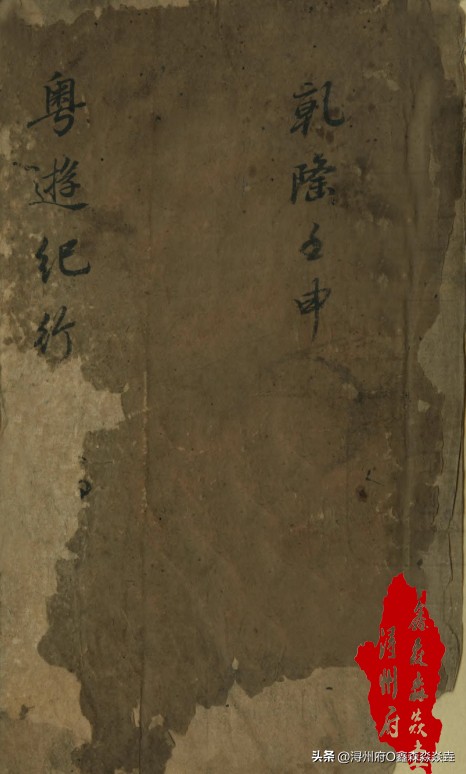 乾隆壬申
粤遊纪行
鑫森淼焱垚
浔州府
头条 @浔州府O鑫森淼焱垚